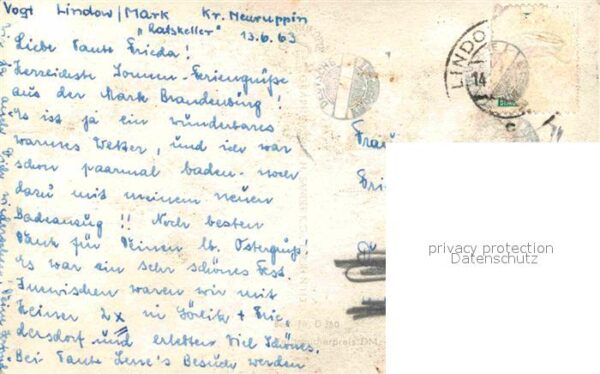 Vogt Lindow/Mark Kr. Neuruppin
"Ratskeller" 13.6.63
Liebe Tante Frieda!
Herzlichste Sommer-Feriengrüße
aus der Mark Brandenburg!
Es ist ja ein wunderbares
warmes Wetter, und ich war
schon paarmal baden - noch
dazu mit meinem neuen
Badeanzug!! Noch besten
Dank für Deinen lb. Ostergruß!
Es war ein sehr schönes Fest.
Inzwischen waren wir mit
Heiner 2x in Görlitz + Frie-
dersdorf und erlebten viel Schönes.
Bei Tante Lene's Besuch werden
LINDO
14
Frau
privacy protection
Datenschutz